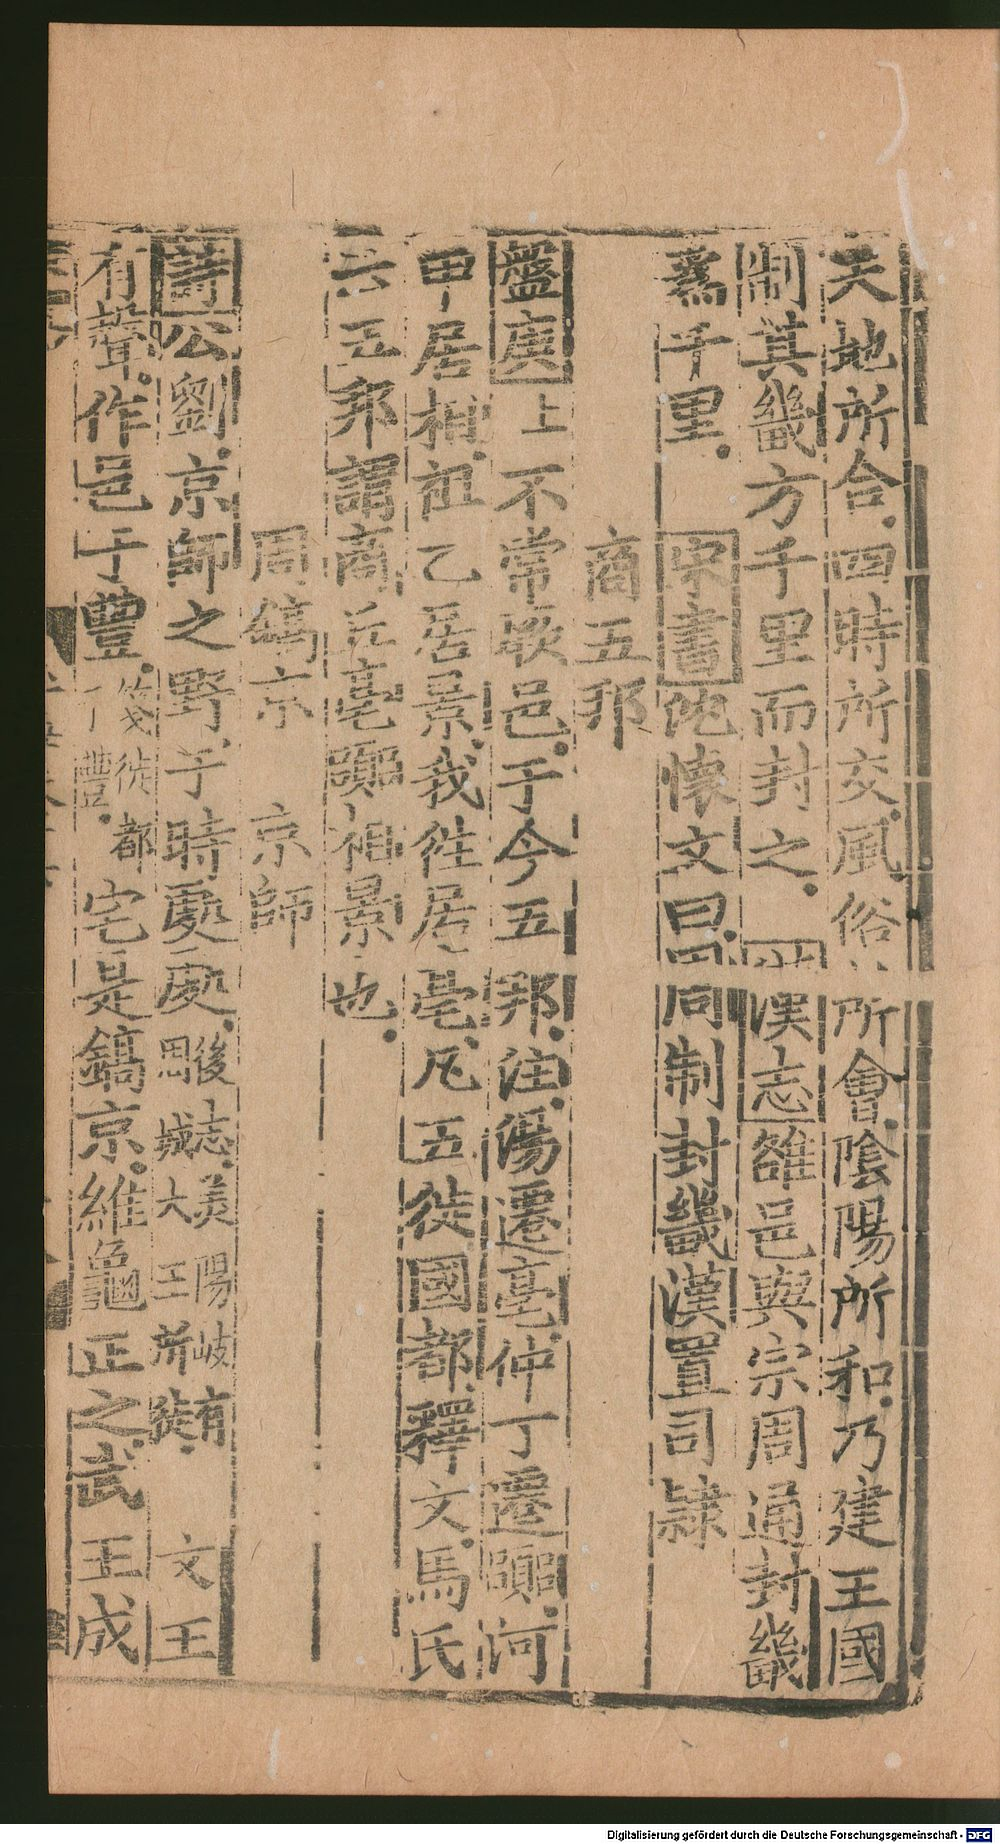 天地所合四時所交風俗所會陰陽所和乃建王國
制其畿方千里而封之 漢志雒邑與宗周通封畿
為千里 宋書沈懷文曰周制封畿漢置司隸
商五邦
盤庚上不常厥邑于今五邦注湯遷亳仲丁遷囂河
甲居相祖乙居景我往居亳凡五徙國都釋文馬氏
云五邦謂商丘亳囂相景也
周鎬京 京師
詩公劉京師之野于時處處後志美陽岐有周城大王所徙 文王
有聲作邑于豐箋徙都于豐宅是鎬京維龜正之武王成
Digitalisierung gefördert durch die Deutsche Forschungsgemeinschaft - DFG